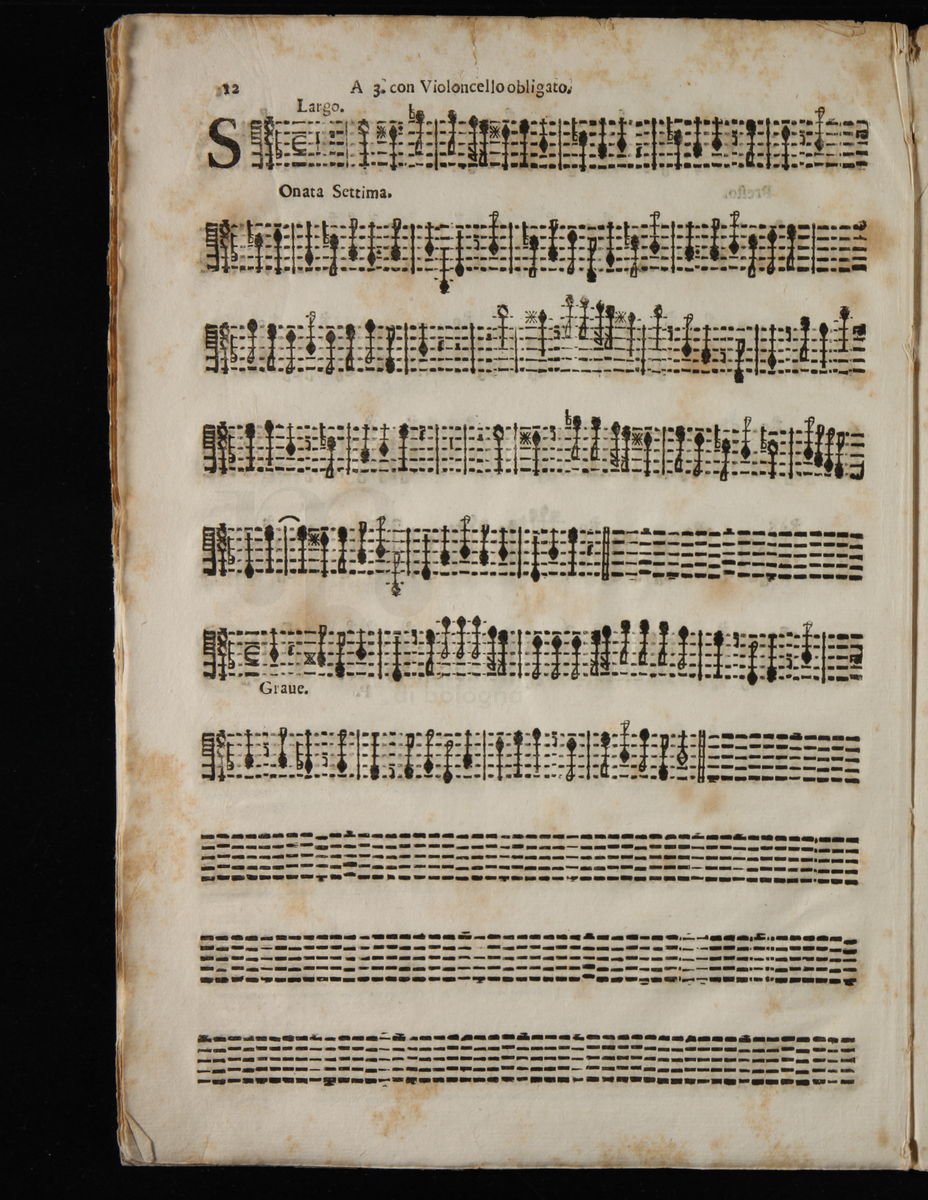 12 A 3. con Violoncello obligato.
Largo.
SOnata Settima.
Graue.